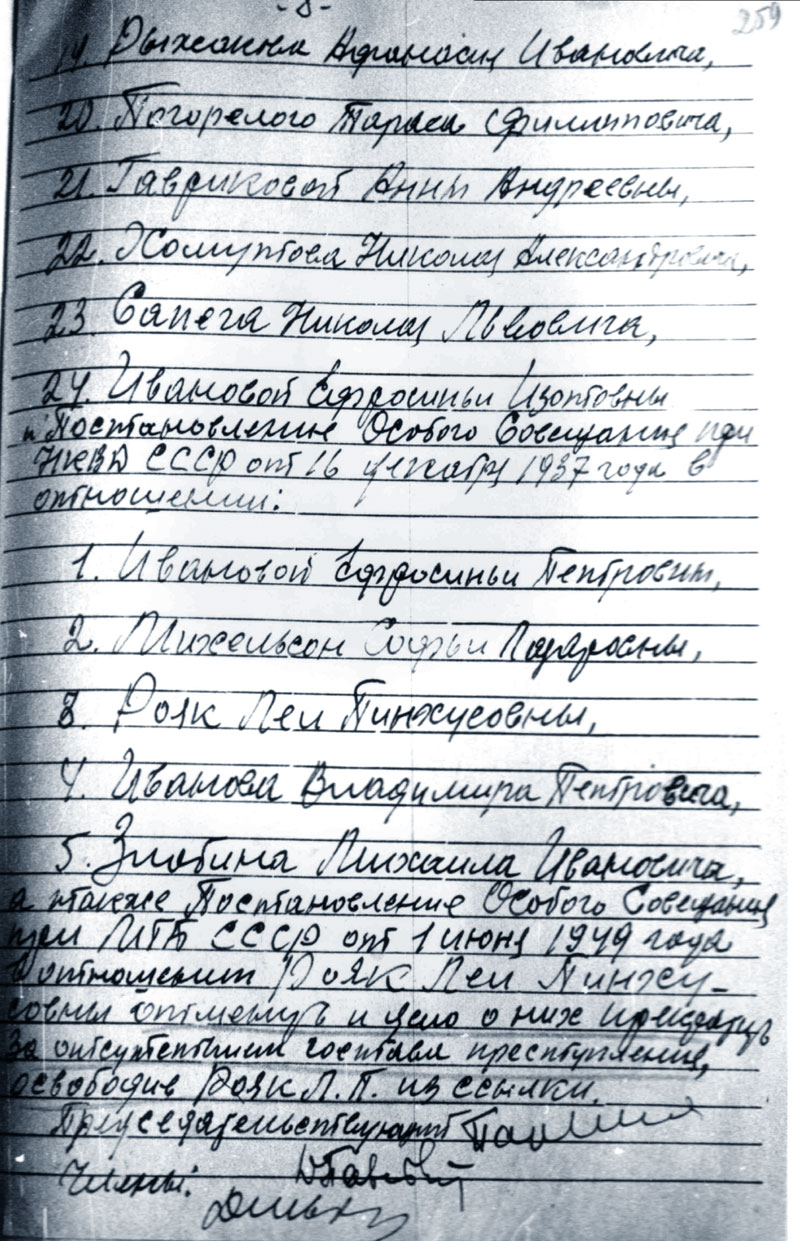 - 8 -
259
19. Рыжакина Афанасия Ивановича,
20. Погорелого Тараса Филипповича,
21. Гавриковой Анны Андреевны,
22. Хомутова Николая Александровича,
23. Сапега Николая Львовича,
24. Ивановой Ефросиньи Изотовны
и Постановление Особого Совещания при
НКВД СССР от 16 декабря 1937 года в
отношении:
1. Ивановой Ефросиньи Петровны,
2. Михельсон Софьи Лазаровны,
3. Рояк Леи Пинхусовны,
4. Иванова Владимира Петровича,
5. Злобина Михаила Ивановича,
а также Постановление Особого Совещания
при МГБ СССР от 1 июня 1949 года
в отношении Рояк Леи Пинху-
совны отменить и дело о них прекратить
за отсутствием состава преступления,
освободив Рояк Л. П. из ссылки.
Председательствующий
Члены: